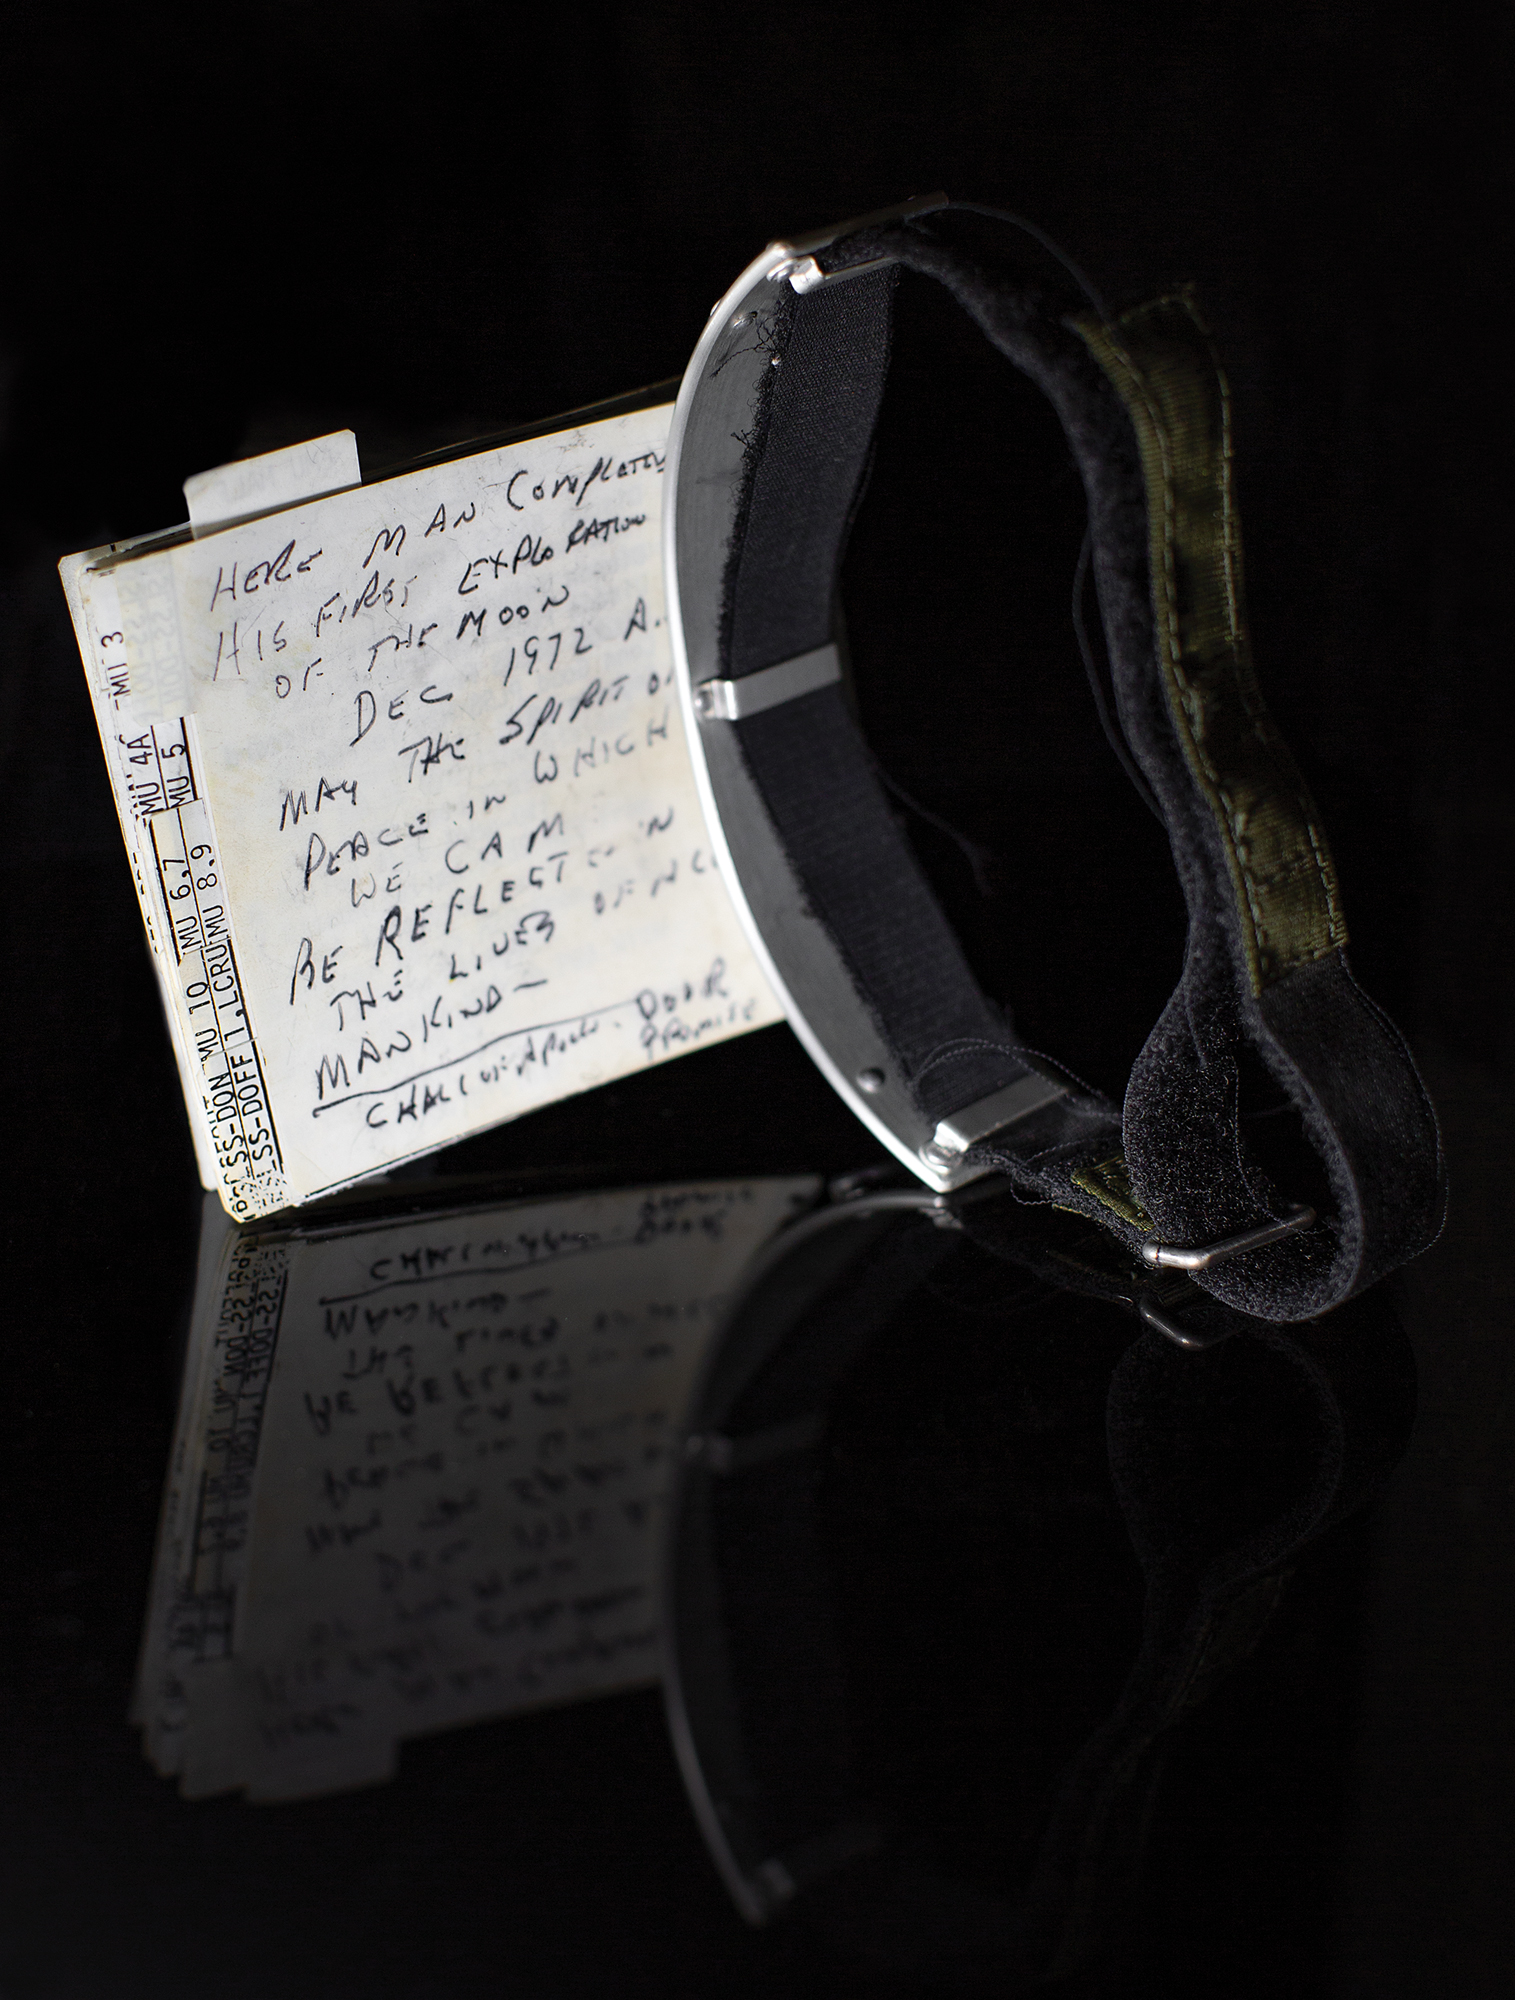 HERE MAN Completed
HIS FIRST EXPLORATION
OF THE MOON
DEC 1972 A.
MAY THE SPIRIT OF
PEACE IN WHICH
WE CAM
BE REFLECTED IN
THE LIVES OF
MANKIND—
CHALL DOOR
PROMISE
MU 3
MU 4A
MU 5
MU 6,7
MU 8,9
MU 10
SS-DON
SS-DOFF 1, LCRU